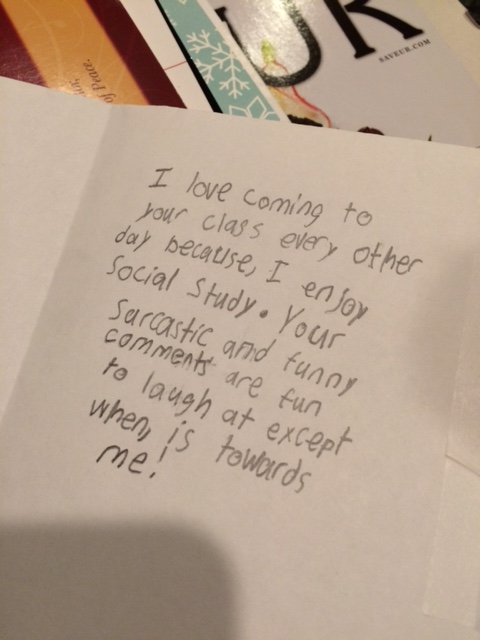 of Peace,
UR
SAVEUR.COM
I love coming to
your class every other
day because, I enjoy
Social Study. Your
Sarcastic and funny
comments are fun
to laugh at except
when, is towards
me!